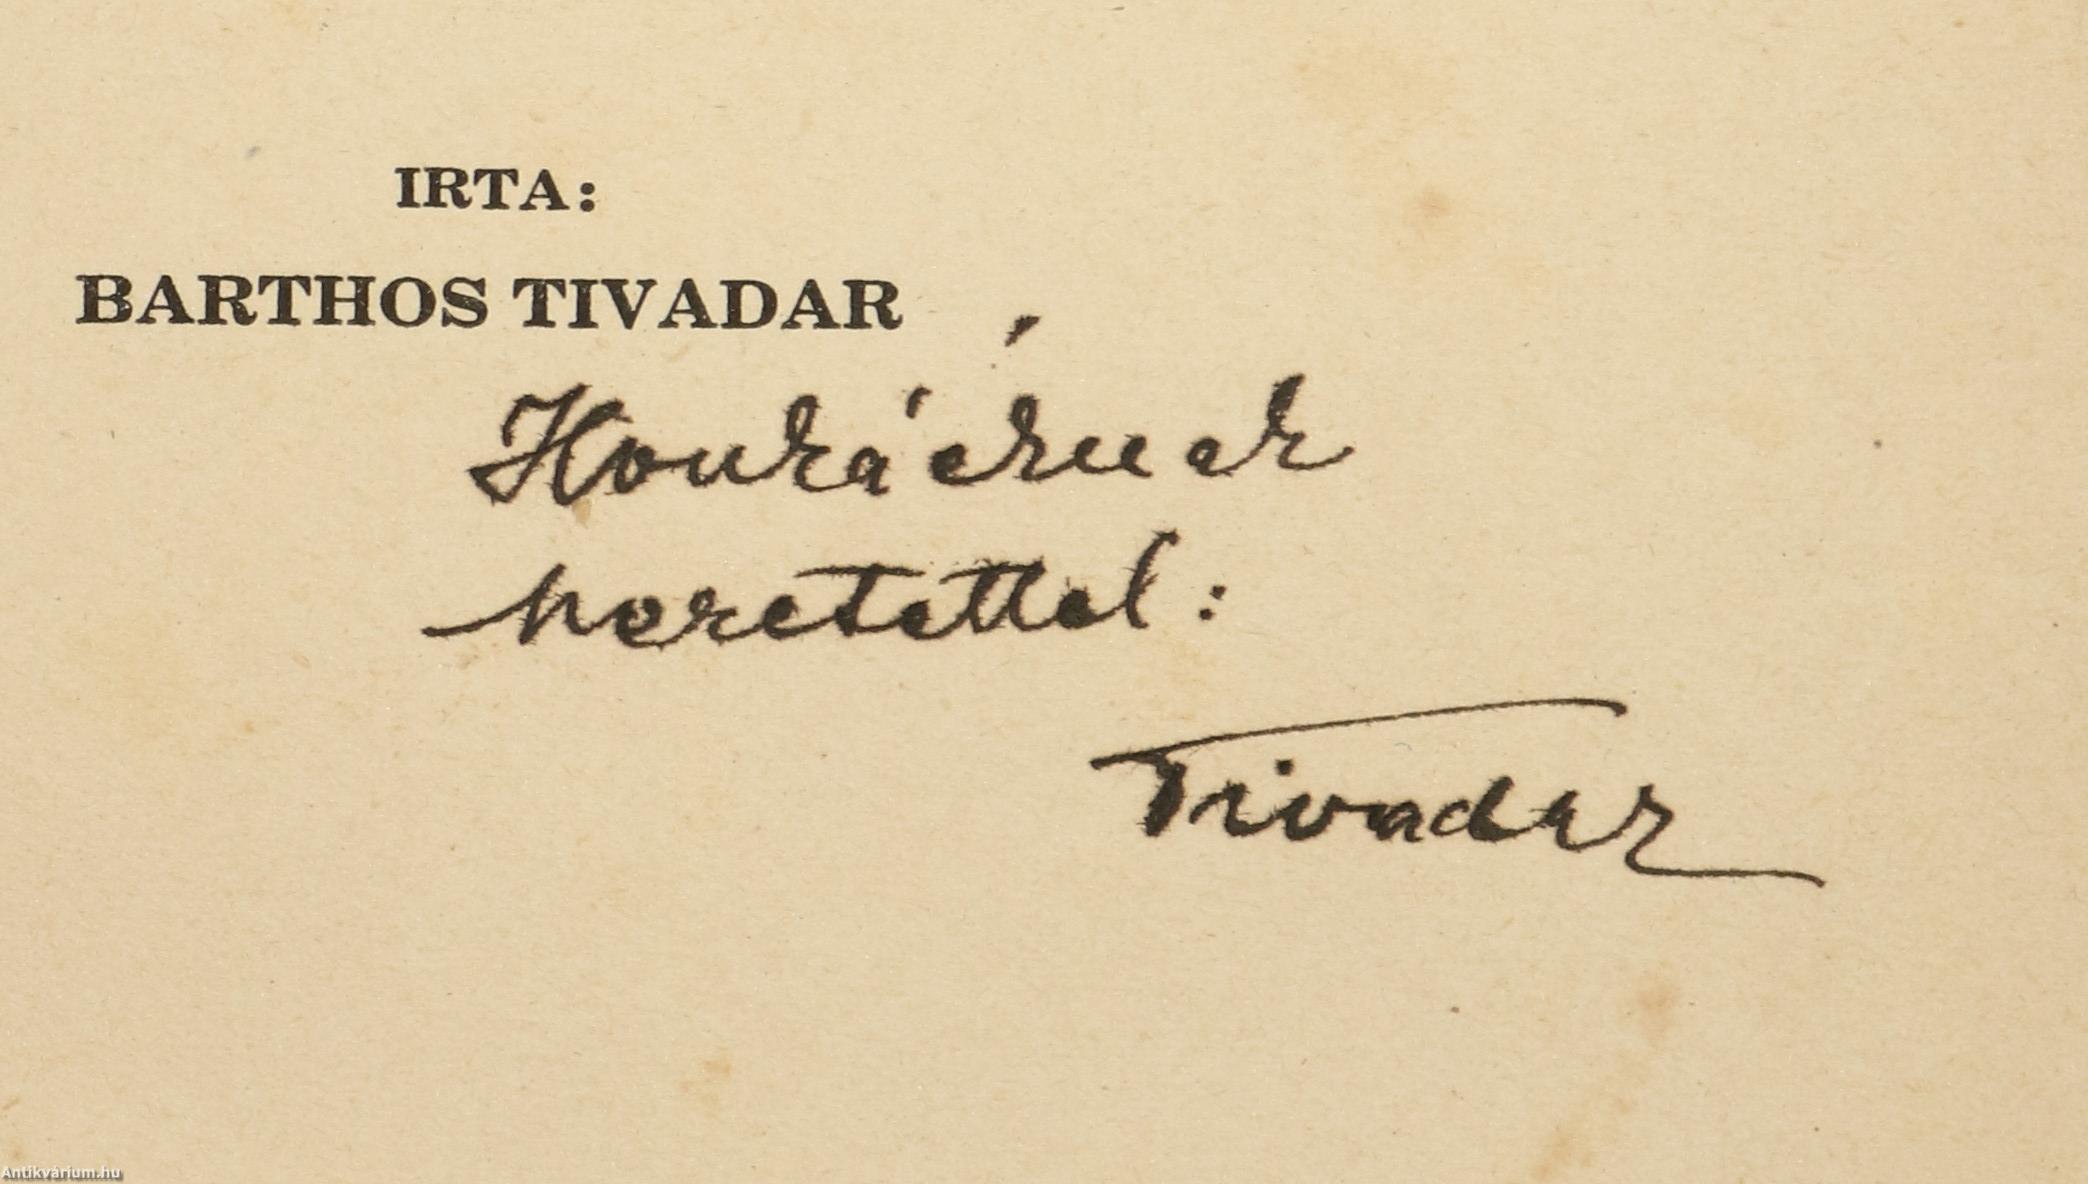 IRTA:
BARTHOS TIVADAR
Honkáéknak
szeretettel:
Tivadar
Antikvárium.hu